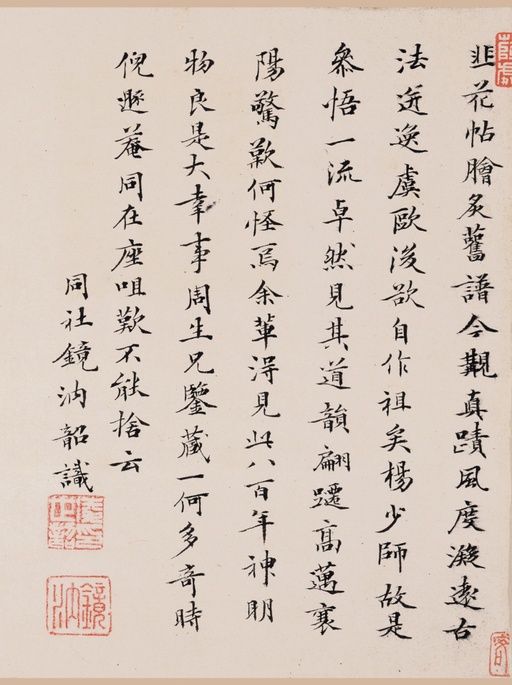 韭花帖膾炙舊譜今覲真蹟風度凝遠古
法迸逸虞歐後欲自作祖矣楊少師故是
參悟一流卓然見其道韻翩躚高邁襄
陽驚歎何怪焉余輩得見此八百年神明
物良是大幸事周生兄鑒藏一何多奇時
倪遯菴同在座咀歎不能捨云
同社鏡汭韶識
鏡汭